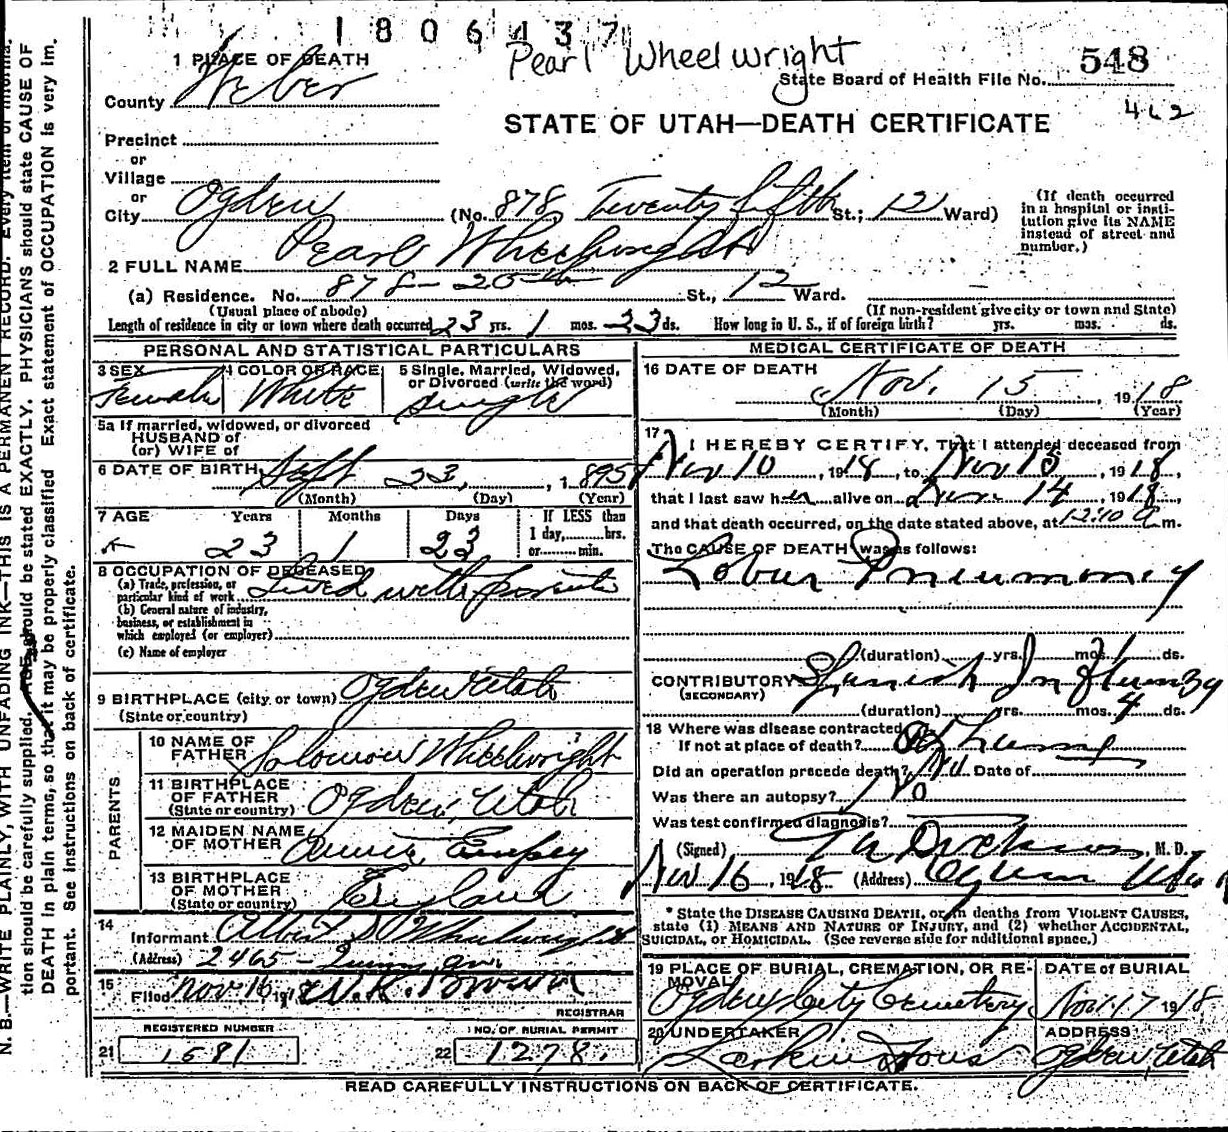 1806437
Pearl Wheelwright
548
State Board of Health File No.
STATE OF UTAH—DEATH CERTIFICATE
1 PLACE OF DEATH
County Weber
Precinct
or
Village
or
City Ogden (No. 878 Twenty fifth St.; 12 Ward)
(If death occurred in a hospital or institution give its NAME instead of street and number.)
2 FULL NAME Pearl Wheelwright
(a) Residence. No. 878 - 25th St., 12 Ward.
(Usual place of abode) (If non-resident give city or town and State)
Length of residence in city or town where death occurred 23 yrs. 1 mos. 23 ds. How long in U. S., if of foreign birth? yrs. mos. ds.
PERSONAL AND STATISTICAL PARTICULARS
3 SEX Female
4 COLOR OR RACE White
5 Single, Married, Widowed, or Divorced (write the word) Single
5a If married, widowed, or divorced
HUSBAND of
(or) WIFE of
6 DATE OF BIRTH Sept 23, 1895
(Month) (Day) (Year)
7 AGE Years Months Days If LESS than
23 1 23 1 day,......hrs.
or......min.
8 OCCUPATION OF DECEASED
(a) Trade, profession, or particular kind of work Lived with parents
(b) General nature of industry, business, or establishment in which employed (or employer)
(c) Name of employer
9 BIRTHPLACE (city or town) Ogden Utah
(State or country)
PARENTS
10 NAME OF FATHER Solomon Wheelwright
11 BIRTHPLACE OF FATHER Ogden, Utah
(State or country)
12 MAIDEN NAME OF MOTHER
13 BIRTHPLACE OF MOTHER England
(State or country)
14 Informant Albert Wheelwright
(Address) 2465 - Quincy av.
15 Filed Nov 16 191 W.K. Brown
REGISTRAR
REGISTERED NUMBER NO. OF BURIAL PERMIT
21 1581 22 1278.
MEDICAL CERTIFICATE OF DEATH
16 DATE OF DEATH Nov. 15 1918
(Month) (Day) (Year)
17 I HEREBY CERTIFY, That I attended deceased from
Nov 10, 1918, to Nov 15, 1918,
that I last saw her alive on Nov 14, 1918
and that death occurred, on the date stated above, at 12:10 a m.
The CAUSE OF DEATH was as follows:
Lobar Pneumoney
(duration) yrs. mos. ds.
CONTRIBUTORY Spanish Influenza
(SECONDARY)
(duration) yrs. mos. 4 ds.
18 Where was disease contracted
If not at place of death? At home
Did an operation precede death? No Date of
Was there an autopsy? No
Was test confirmed diagnosis?
(Signed) M. D.
Nov 16, 1918 (Address) Ogden Utah
* State the DISEASE CAUSING DEATH, or in deaths from VIOLENT CAUSES,
state (1) MEANS AND NATURE OF INJURY, and (2) whether ACCIDENTAL,
SUICIDAL, or HOMICIDAL. (See reverse side for additional space.)
19 PLACE OF BURIAL, CREMATION, OR REMOVAL DATE of BURIAL
Ogden City Cemetery Nov. 17 1918
20 UNDERTAKER ADDRESS
Larkin & Sons Ogden, Utah
READ CAREFULLY INSTRUCTIONS ON BACK OF CERTIFICATE.
N. B.—WRITE PLAINLY, WITH UNFADING INK—THIS IS A PERMANENT RECORD. Every item of informa-
tion should be carefully supplied. AGE should be stated EXACTLY. PHYSICIANS should state CAUSE OF
DEATH in plain terms, so that it may be properly classified Exact statement of OCCUPATION is very im-
portant. See instructions on back of certificate.